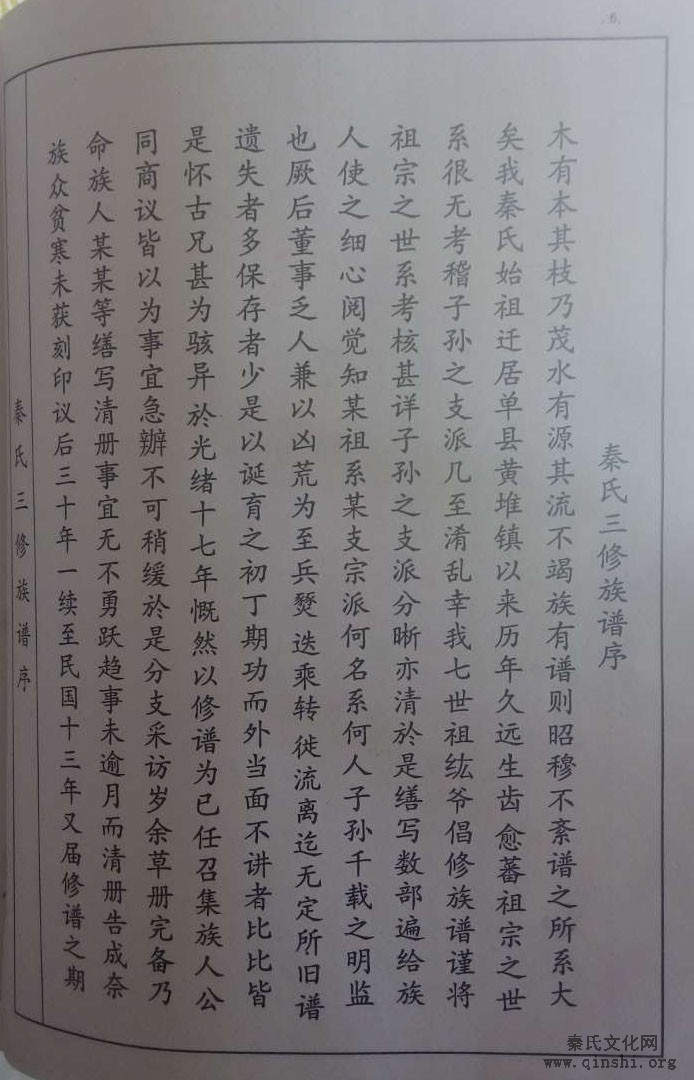 6.
秦氏三修族谱序
木有本其枝乃茂水有源其流不竭族有谱则昭穆不紊谱之所系大
矣我秦氏始祖迁居单县黄堆镇以来历年久远生齿愈蕃祖宗之世
系很无考稽子孙之支派几至淆乱幸我七世祖纮爷倡修族谱谨将
祖宗之世系考核甚详子孙之支派分晰亦清於是缮写数部遍给族
人使之细心阅觉知某祖系某支宗派何名系何人子孙千载之明监
也厥后董事乏人兼以凶荒为至兵燹迭乘转徙流离迄无定所旧谱
遗失者多保存者少是以诞育之初丁期功而外当面不讲者比比皆
是怀古兄甚为骇异於光绪十七年慨然以修谱为已任召集族人公
同商议皆以为事宜急辦不可稍缓於是分支采访岁余草册完备乃
命族人某某等缮写清册事宜无不勇跃趋事未逾月而清册告成奈
族众贫寒未获刻印议后三十年一续至民国十三年又届修谱之期
秦氏三修族谱序
秦氏文化网
www.qinshi.org